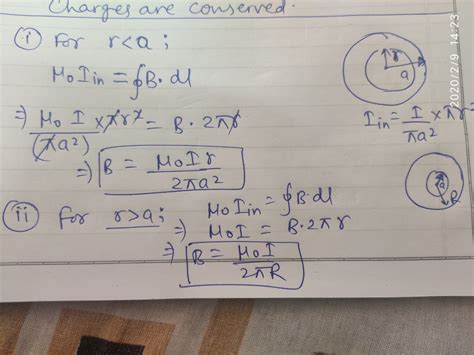 Charges are conserved.
(i) For r<a ;
μ₀ I in = ∮B·dl
⇒ μ₀ I/(πa²) × πr² = B·2πr
⇒ B = μ₀Ir/2πa²
r
a
I in = I/πa² × πr
(ii) For r>a ; μ₀ I in = ∮B·dl
⇒ μ₀I = B·2πr
⇒ B = μ₀I/2πR
a
R
2020/2/9 14:23